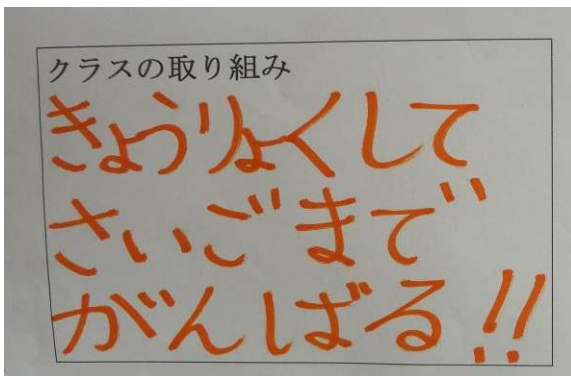 クラスの取り組み
きょうりょくして
さいごまで
がんばる!!